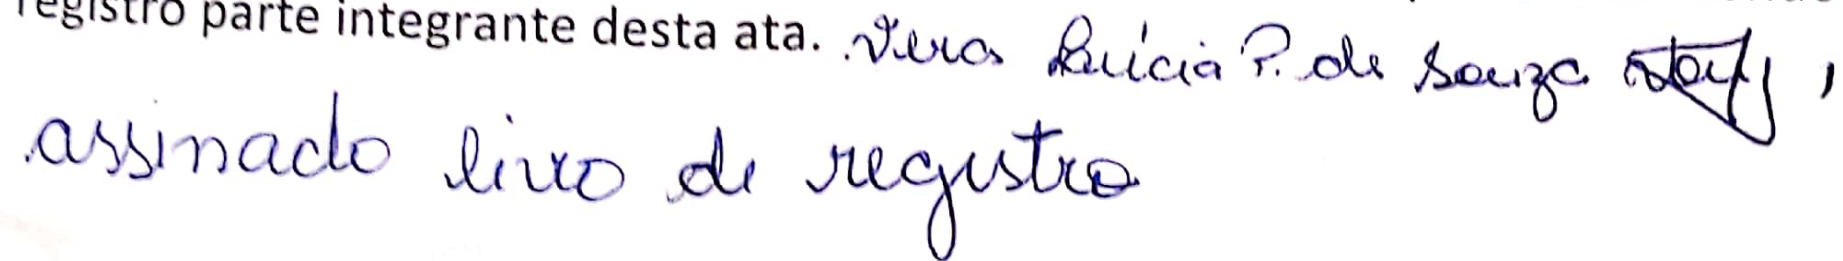 registro parte integrante desta ata. Vera Lúcia P. de Souza ,
assinado livro de registro